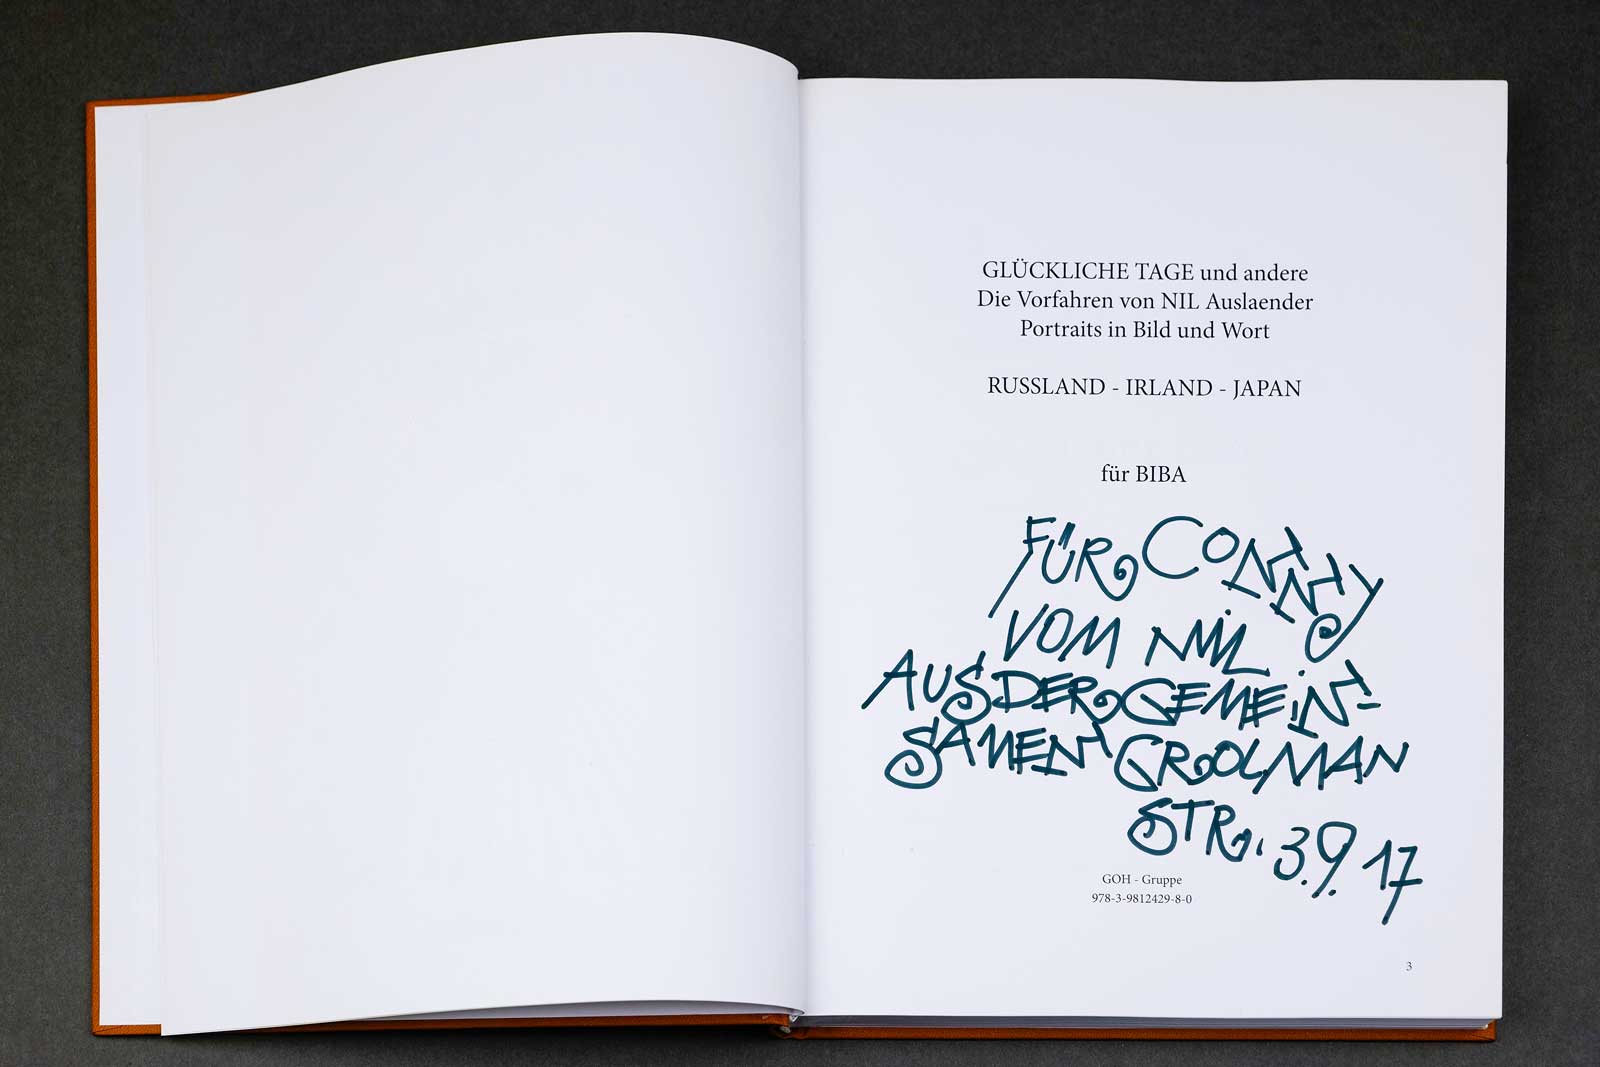 GLÜCKLICHE TAGE und andere
Die Vorfahren von NIL Auslaender
Portraits in Bild und Wort
RUSSLAND - IRLAND - JAPAN
für BIBA
FÜR CONNY
VOM NIL
AUS DER GEMEIN-
SAMEN GROLMAN
STR. 3.9.17
GOH - Gruppe
978-3-9812429-8-0
3